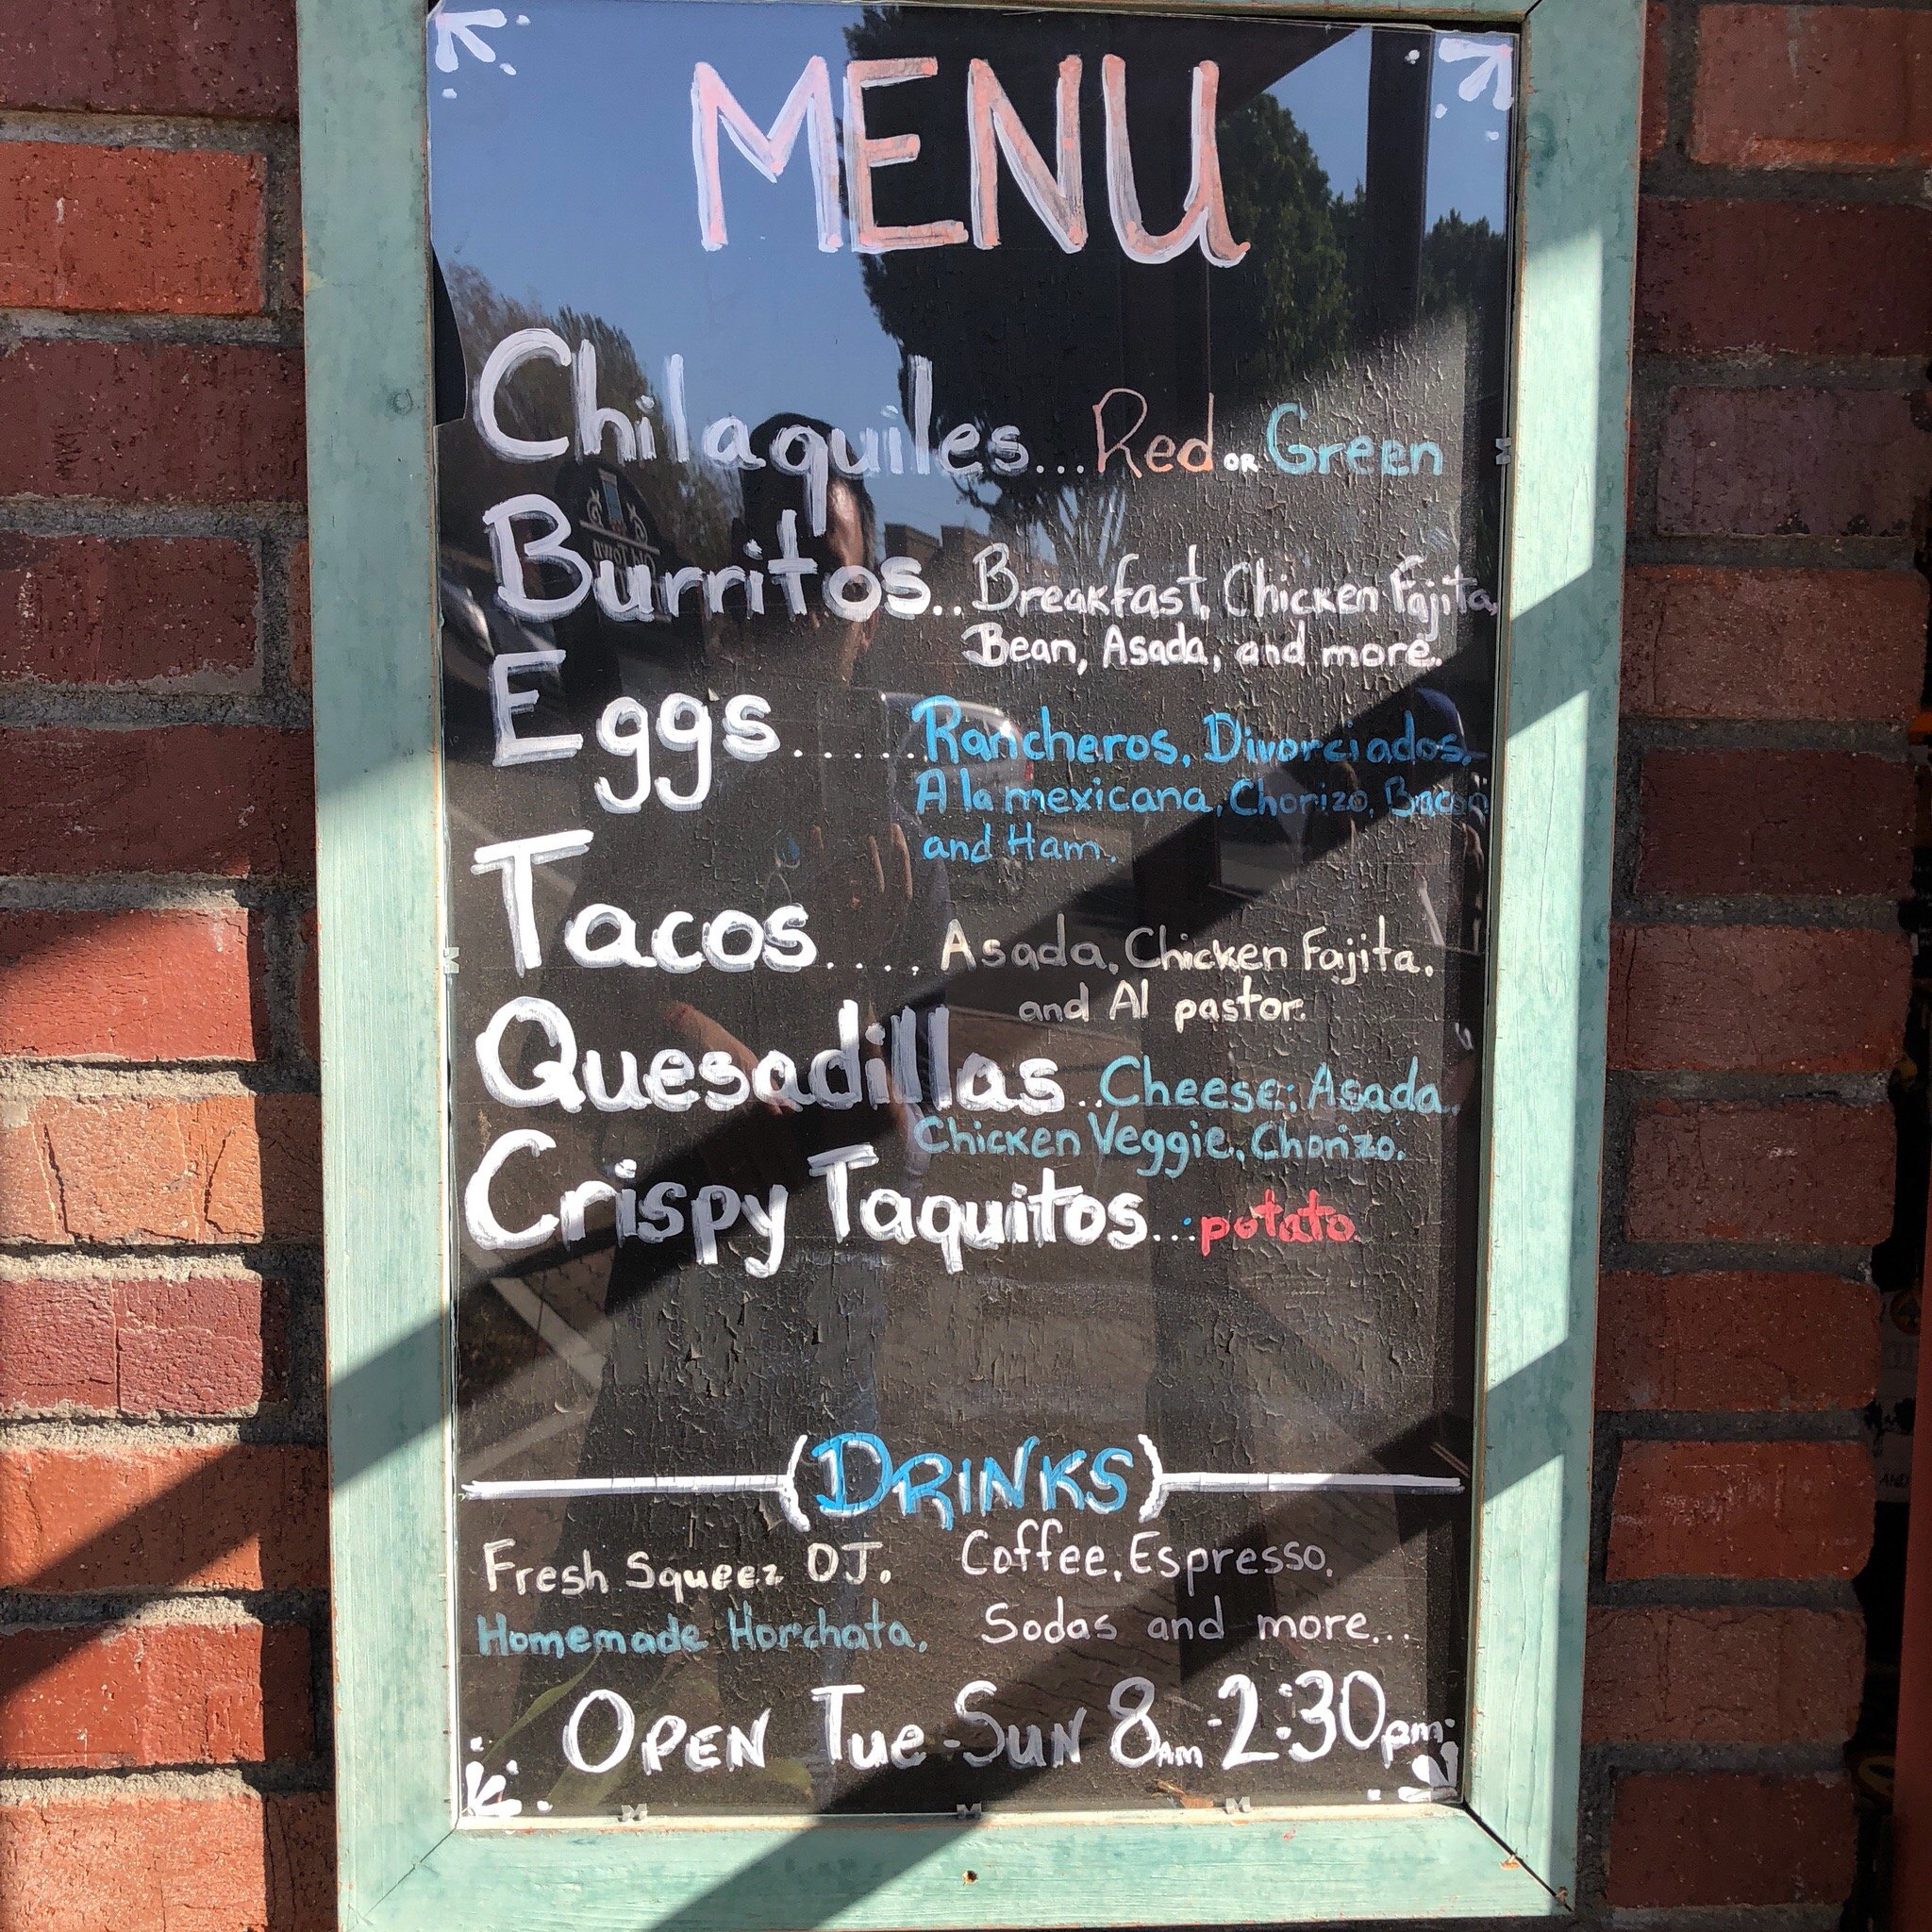 MENU
Chilaquiles...Red OR Green
Burritos..Breakfast, Chicken Fajita,
Bean, Asada, and more.
Eggs......Rancheros, Divorciados,
A la mexicana, Chorizo, Bacon
and Ham.
Tacos....,Asada, Chicken Fajita,
and Al pastor.
Quesadillas..Cheese; Asada,
Chicken Veggie, Chorizo.
Crispy Taquitos...potato.
(DRINKS)
Fresh Squeez OJ. Coffee, Espresso,
Homemade Horchata, Sodas and more...
OPEN Tue-Sun 8AM-2:30pm.